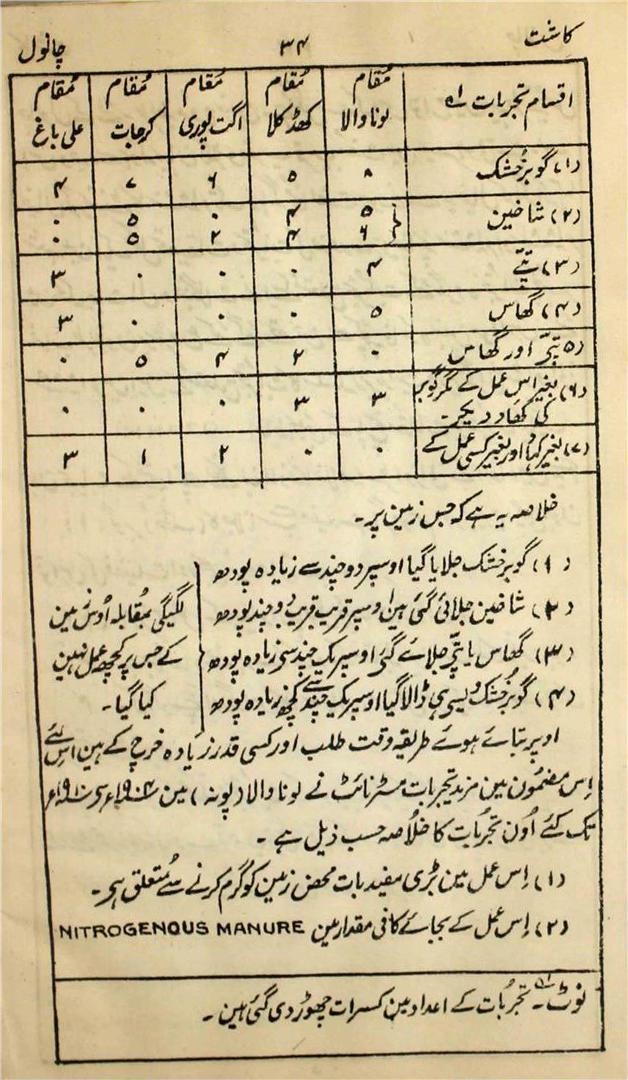 کاشت ۳۴ چانول
اقسام تجربات مقام لوناوالا مقام کھڈکلا مقام اگت پوری مقام کرجات مقام علی باغ
(۱) گوبر خشک ۸ ۵ ۶ ۷ ۴
(۲) شاخین ۵ ۴ ۰ ۵ ۰
۶ ۴ ۲ ۵ ۰
(۳) پتّے ۴ ۰ ۰ ۰ ۳
(۴) گھاس ۵ ۰ ۰ ۰ ۳
(۵) پتّے اور گھاس ۰ ۲ ۴ ۵ ۰
(۶) بغیر اس عمل کے مگر گوبر
کی کھاد دیکر۔ ۳ ۳ ۰ ۰ ۰
(۷) بغیر کھاد اور بغیر کسی عمل کے ۰ ۰ ۲ ۱ ۳
خلاصہ یہ ہے کہ جس زمین پر۔
(۱) گوبر خشک جلایا گیا اوسپر دو چند سے زیادہ پودھ
(۲) شاخین جلائی گئی ہین اوسپر قریب قریب دو چند پودھ
(۳) گھاس یا پتّے جلائے گئے اوسپر یک چند سی زیادہ پودھ
(۴) گوبر خشک ویسی ہی ڈالا گیا اوسپر یک چند سے کچھ زیادہ پودھ
لگیگی بمقابلہ اوس زمین
کے جس پر کچھ عمل نہین
کیا گیا۔
اوپر بتائے ہوئے طریقہ وقت طلب اور کسی قدر زیادہ خرچ کے ہین اس لئے
اِس مضمون مین مزید تجربات مسٹر نائٹ نے لوناوالا (پونہ) مین ۱۹۰۴ء سی ۱۹۱۰ء
تک کئے اُون تجربات کا خلاصہ حسب ذیل ہے۔
(۱) اِس عمل مین بڑی مفید بات محض زمین کو گرم کرنے سے متعلق ہی۔
(۲) اِس عمل کے بجائے کافی مقدار مین NITROGENOUS MANURE
نوٹ۔ تجربات کے اعداد مین کسرات چھوڑ دی گئی ہین۔